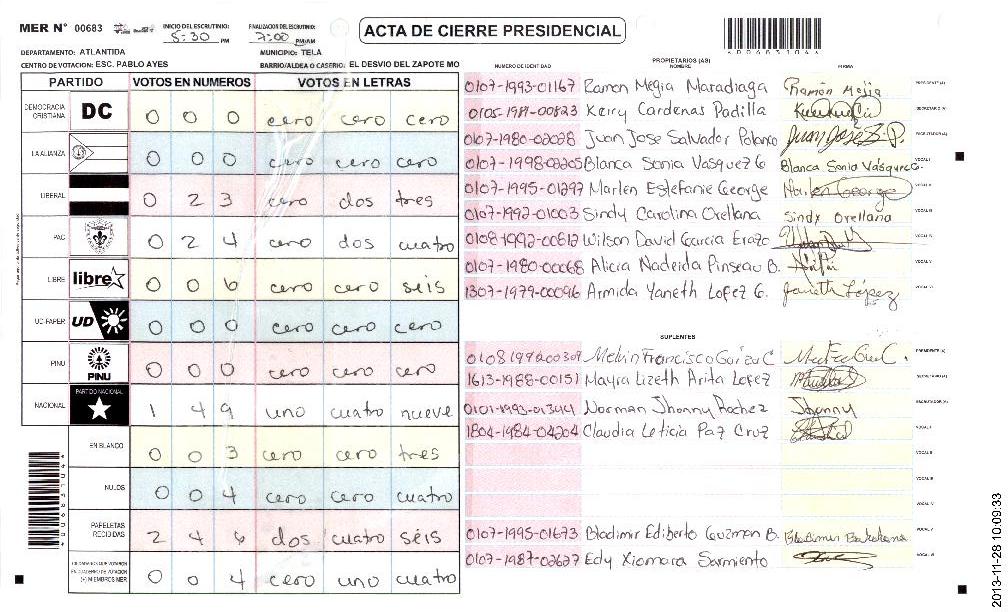 MER N° 00683
INICIO DEL ESCRUTINIO:
5:30 PM
FINALIZACION DEL ESCRUTINIO:
7:00 PM/AM
ACTA DE CIERRE PRESIDENCIAL
DEPARTAMENTO: ATLANTIDA
MUNICIPIO: TELA
CENTRO DE VOTACION: ESC. PABLO AYES
BARRIO/ALDEA O CASERIO: EL DESVIO DEL ZAPOTE MO
PARTIDO VOTOS EN NUMEROS VOTOS EN LETRAS
DEMOCRACIA CRISTIANA DC 0 0 0 cero cero cero
LA ALIANZA 0 0 0 cero cero cero
LIBERAL 0 2 3 cero dos tres
PAC 0 2 4 cero dos cuatro
LIBRE libre 0 0 6 cero cero séis
UD-FAPER UD 0 0 0 cero cero cero
PINU PINU 0 0 0 cero cero cero
NACIONAL PARTIDO NACIONAL 1 4 9 uno cuatro nueve
EN BLANCO 0 0 3 cero cero tres
NULOS 0 0 4 cero cero cuatro
PAPELETAS RECIBIDAS 2 4 6 dos cuatro séis
CIUDADANOS QUE VOTARON EN CUADERNO DE VOTACION (+) MIEMBROS MER 0 0 4 cero uno cuatro
NUMERO DE IDENTIDAD
PROPIETARIOS (AS)
NOMBRE
FIRMA
0107-1993-01167 Ramon Megia Maradiaga Ramón Mejia PRESIDENTE (A)
0105-1981-00823 Kerry Cardenas Padilla SECRETARIO (A)
0107-1980-02028 Juan Jose Salvador Polanco Juan José S.P. ESCRUTADOR (A)
0107-1998-02205 Blanca Sonia Vasquez G Blanca Sonia Vásquez G. VOCAL I
0107-1995-01297 Marlen Estefanie George VOCAL II
0107-1992-01003 Sindy Carolina Orellana Sindy Orellana VOCAL III
0108-1992-00812 Wilson David Garcia Erazo VOCAL IV
0107-1980-00068 Alicia Nadeida Pinseau B. VOCAL V
1307-1979-00096 Armida Yaneth Lopez G. Janeth López VOCAL VI
SUPLENTES
0108 1992 00309 Melvin Francisco Garza C PRESIDENTE (A)
1613-1988-00151 Mayra Lizeth Arita Lopez SECRETARIO (A)
0101-1993-01344 Norman Jhonny Rochez Jhonny ESCRUTADOR (A)
1804-1984-04204 Claudia Leticia Paz Cruz VOCAL I
VOCAL II
VOCAL III
VOCAL IV
0107-1995-01673 Bladimir Ediberto Guzman B. VOCAL V
0107-1987-02627 Edy Xiomara Sarmiento VOCAL VI
2013-11-28 10:09:33